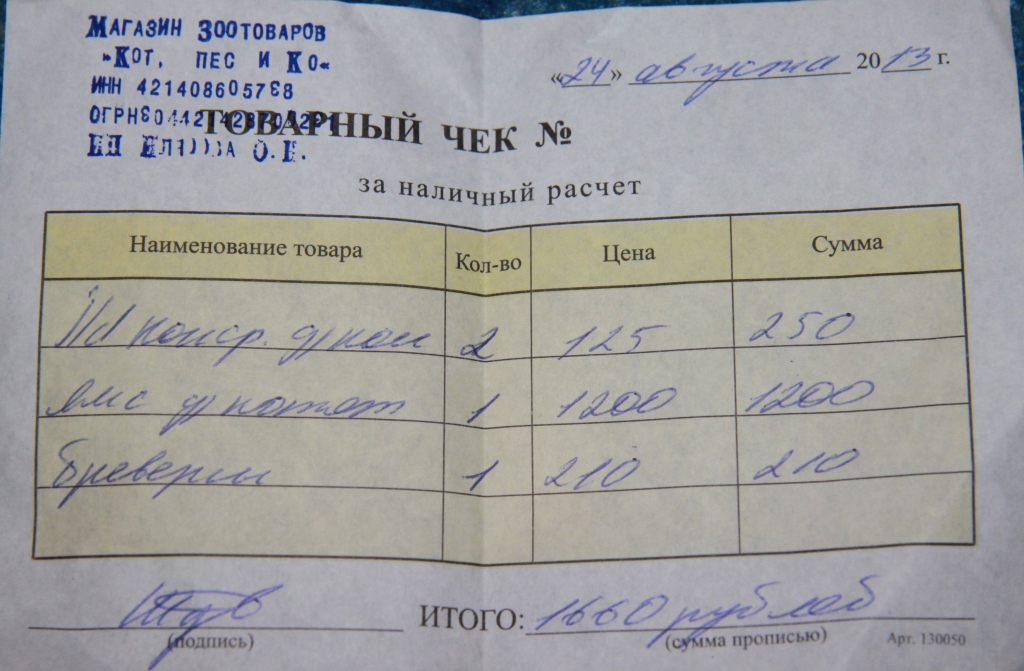 Магазин Зоотоваров
"Кот, пес и Ко"
ИНН 421408605798
ОГРН
О.
«24» августа 2013 г.
ТОВАРНЫЙ ЧЕК №
за наличный расчет
Наименование товара Кол-во Цена Сумма
конср. д/кош 2 125 250
ямс д/котят 1 1200 1200
бреверсы 1 210 210
ИТОГО: 1660 рублей
(подпись) (сумма прописью) Арт. 130050